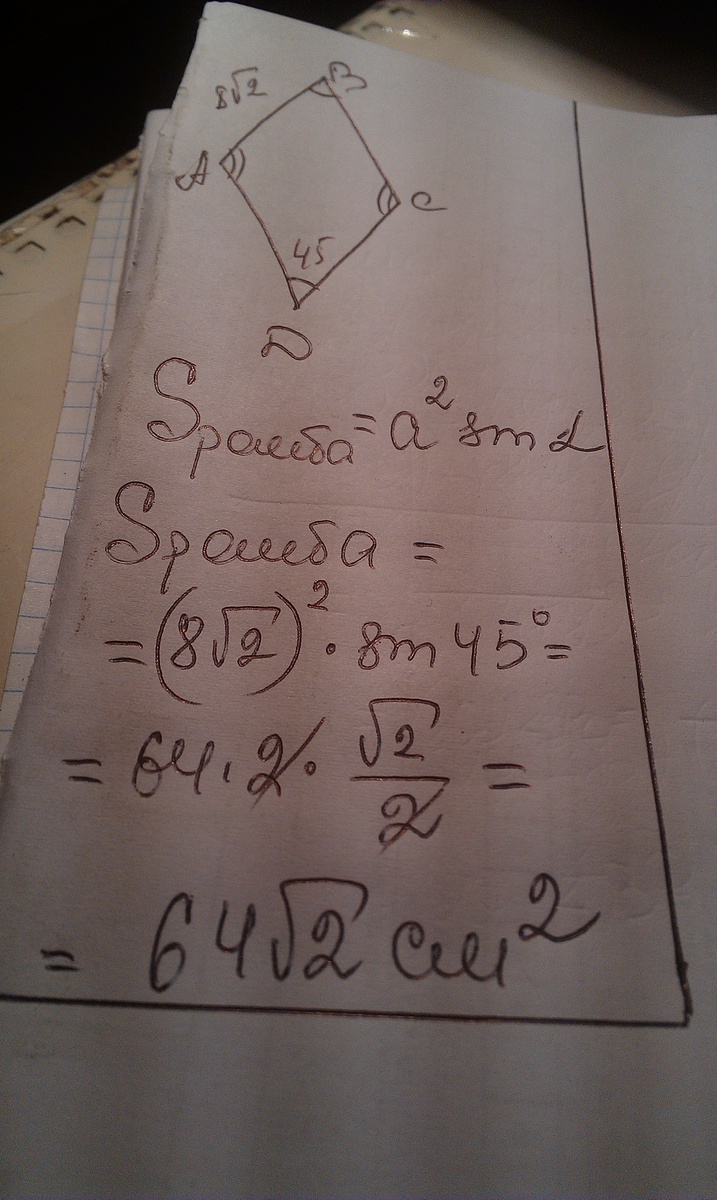 8√2
B
A
C
45
D
Sромба = a² sin α
Sромба =
= (8√2)² · sin 45° =
= 64 · 2 · √2/2 =
= 64√2 см²